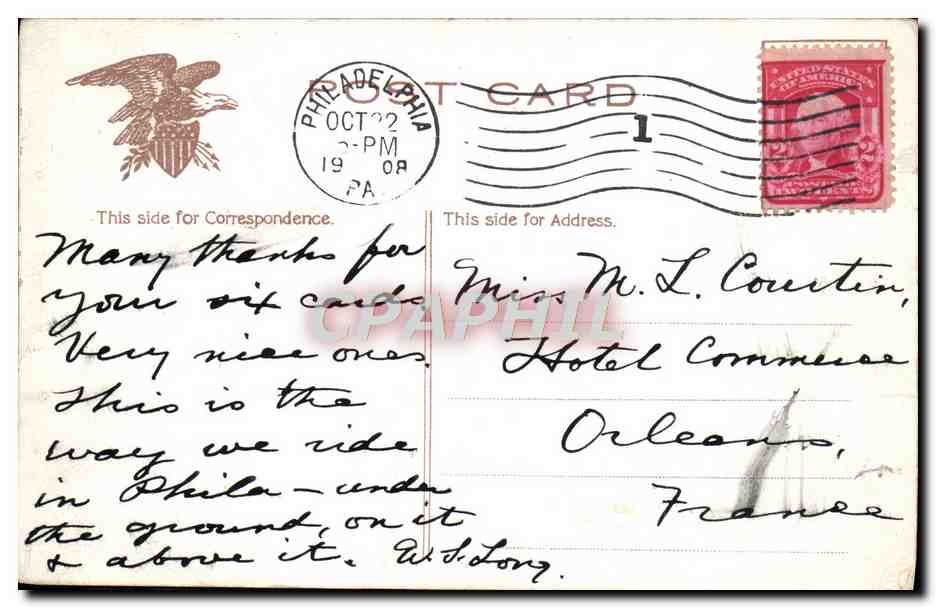 POST CARD
PHILADELPHIA
OCT 22
-PM
1908
PA.
1
UNITED STATES
OF AMERICA
2 2
TWO CENTS
This side for Correspondence.
This side for Address.
Many thanks for
your six cards.
Very nice ones.
This is the
way we ride
in Phila – under
the ground, on it
& above it. W. S. Long.
Miss M. L. Courtin,
Hotel Commerce
Orleans,
France
CPAPHIL